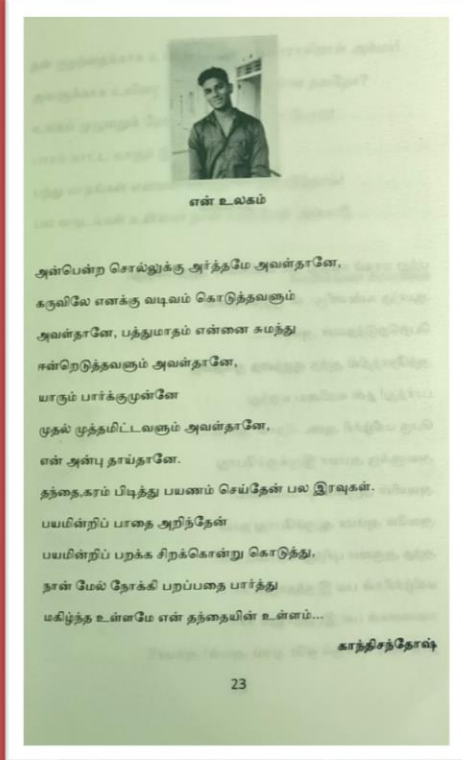 என் உலகம்
அன்பென்ற சொல்லுக்கு அர்த்தமே அவள்தானே,
கருவிலே எனக்கு வடிவம் கொடுத்தவளும்
அவள்தானே, பத்துமாதம் என்னை சுமந்து
ஈன்றெடுத்தவளும் அவள்தானே,
யாரும் பார்க்குமுன்னே
முதல் முத்தமிட்டவளும் அவள்தானே,
என் அன்பு தாய்தானே.
தந்தை,கரம் பிடித்து பயணம் செய்தேன் பல இரவுகள்.
பயமின்றிப் பாதை அறிந்தேன்
பயமின்றிப் பறக்க சிறக்கொன்று கொடுத்து,
நான் மேல் நோக்கி பறப்பதை பார்த்து
மகிழ்ந்த உள்ளமே என் தந்தையின் உள்ளம்...
காந்திசந்தோஷ்
23